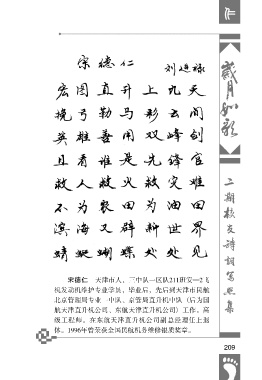 宋德仁
刘进禄
宏图直升上九天
挽弓勒马彩云间
英雄善用双峰剑
且看谁是先锋官
救人救火救灾难
不为装田为油田
滨海又辟新世界
蜻蜓蝴蝶处处见
宋德仁 天津市人,三中队一区队211班安一2飞
机发动机维护专业学员,毕业后,先后到天津市民航
北京管理局专业一中队、京管局直升机中队(后为国
航天津直升机公司、东航天津直升机公司)工作。高
级工程师。在东航天津直升机公司副总经理任上退
休。1996年曾荣获全国民航机务维修银质奖章。
岁月如歌
二期校友诗词写照集
209